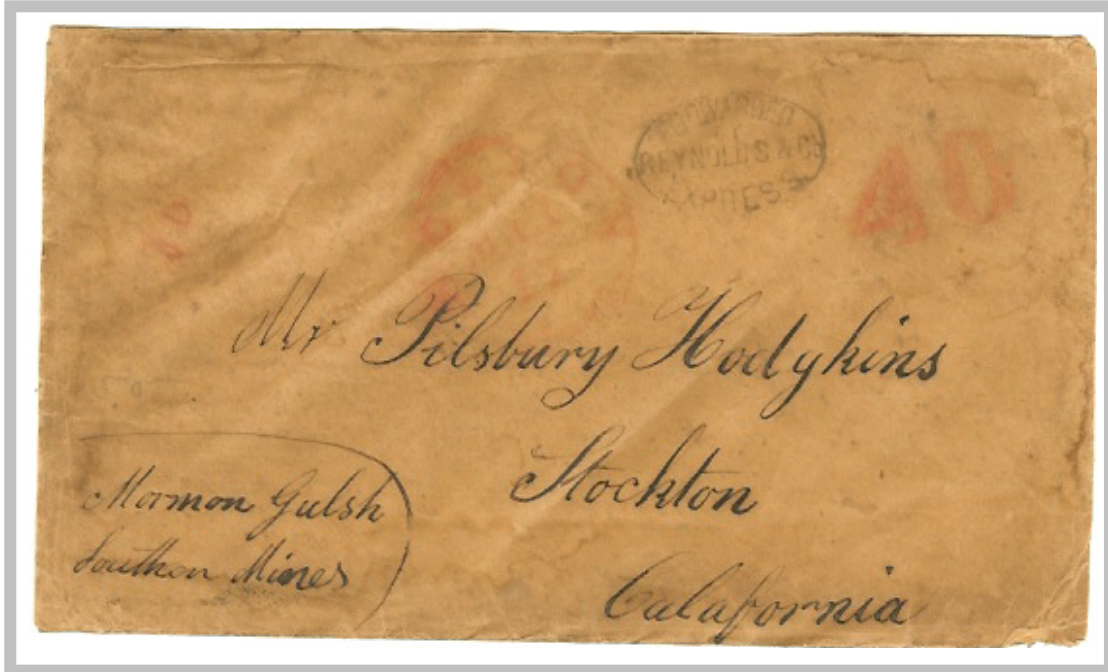 FORWARDED
REYNOLDS & CO
EXPRESS
40
Mr Pilsbury Hodgkins
Stockton
Calafornia
Mormon Gulsh
Southon Mines